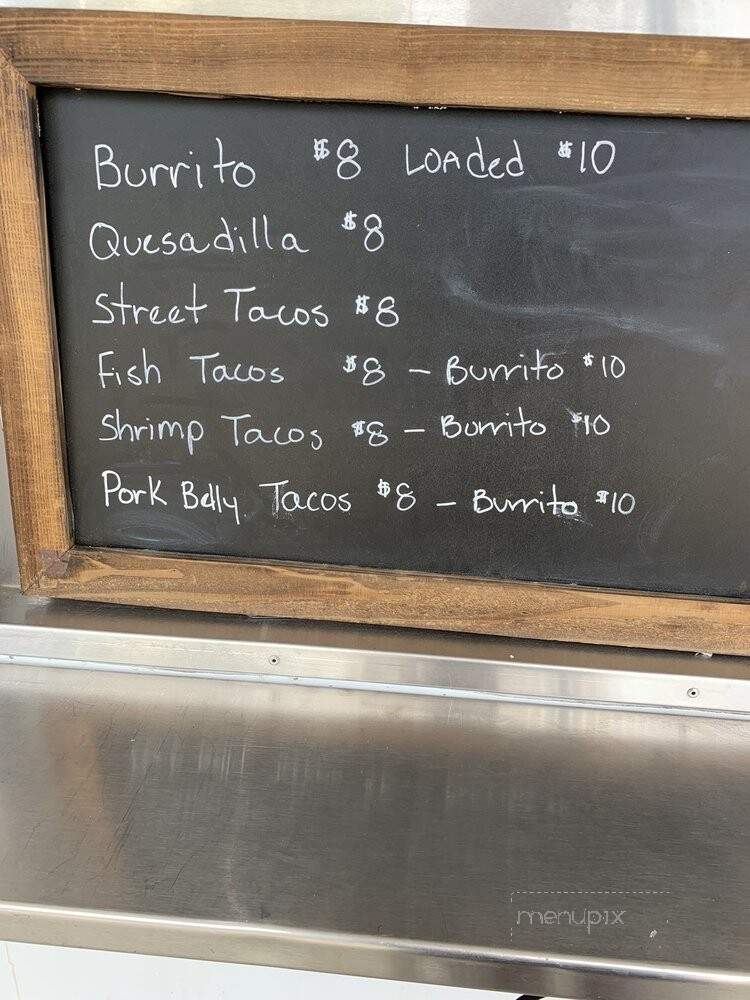 Burrito $8 Loaded $10
Quesadilla $8
Street Tacos $8
Fish Tacos $8 - Burrito $10
Shrimp Tacos $8 - Burrito $10
Pork Belly Tacos $8 - Burrito $10
menupix